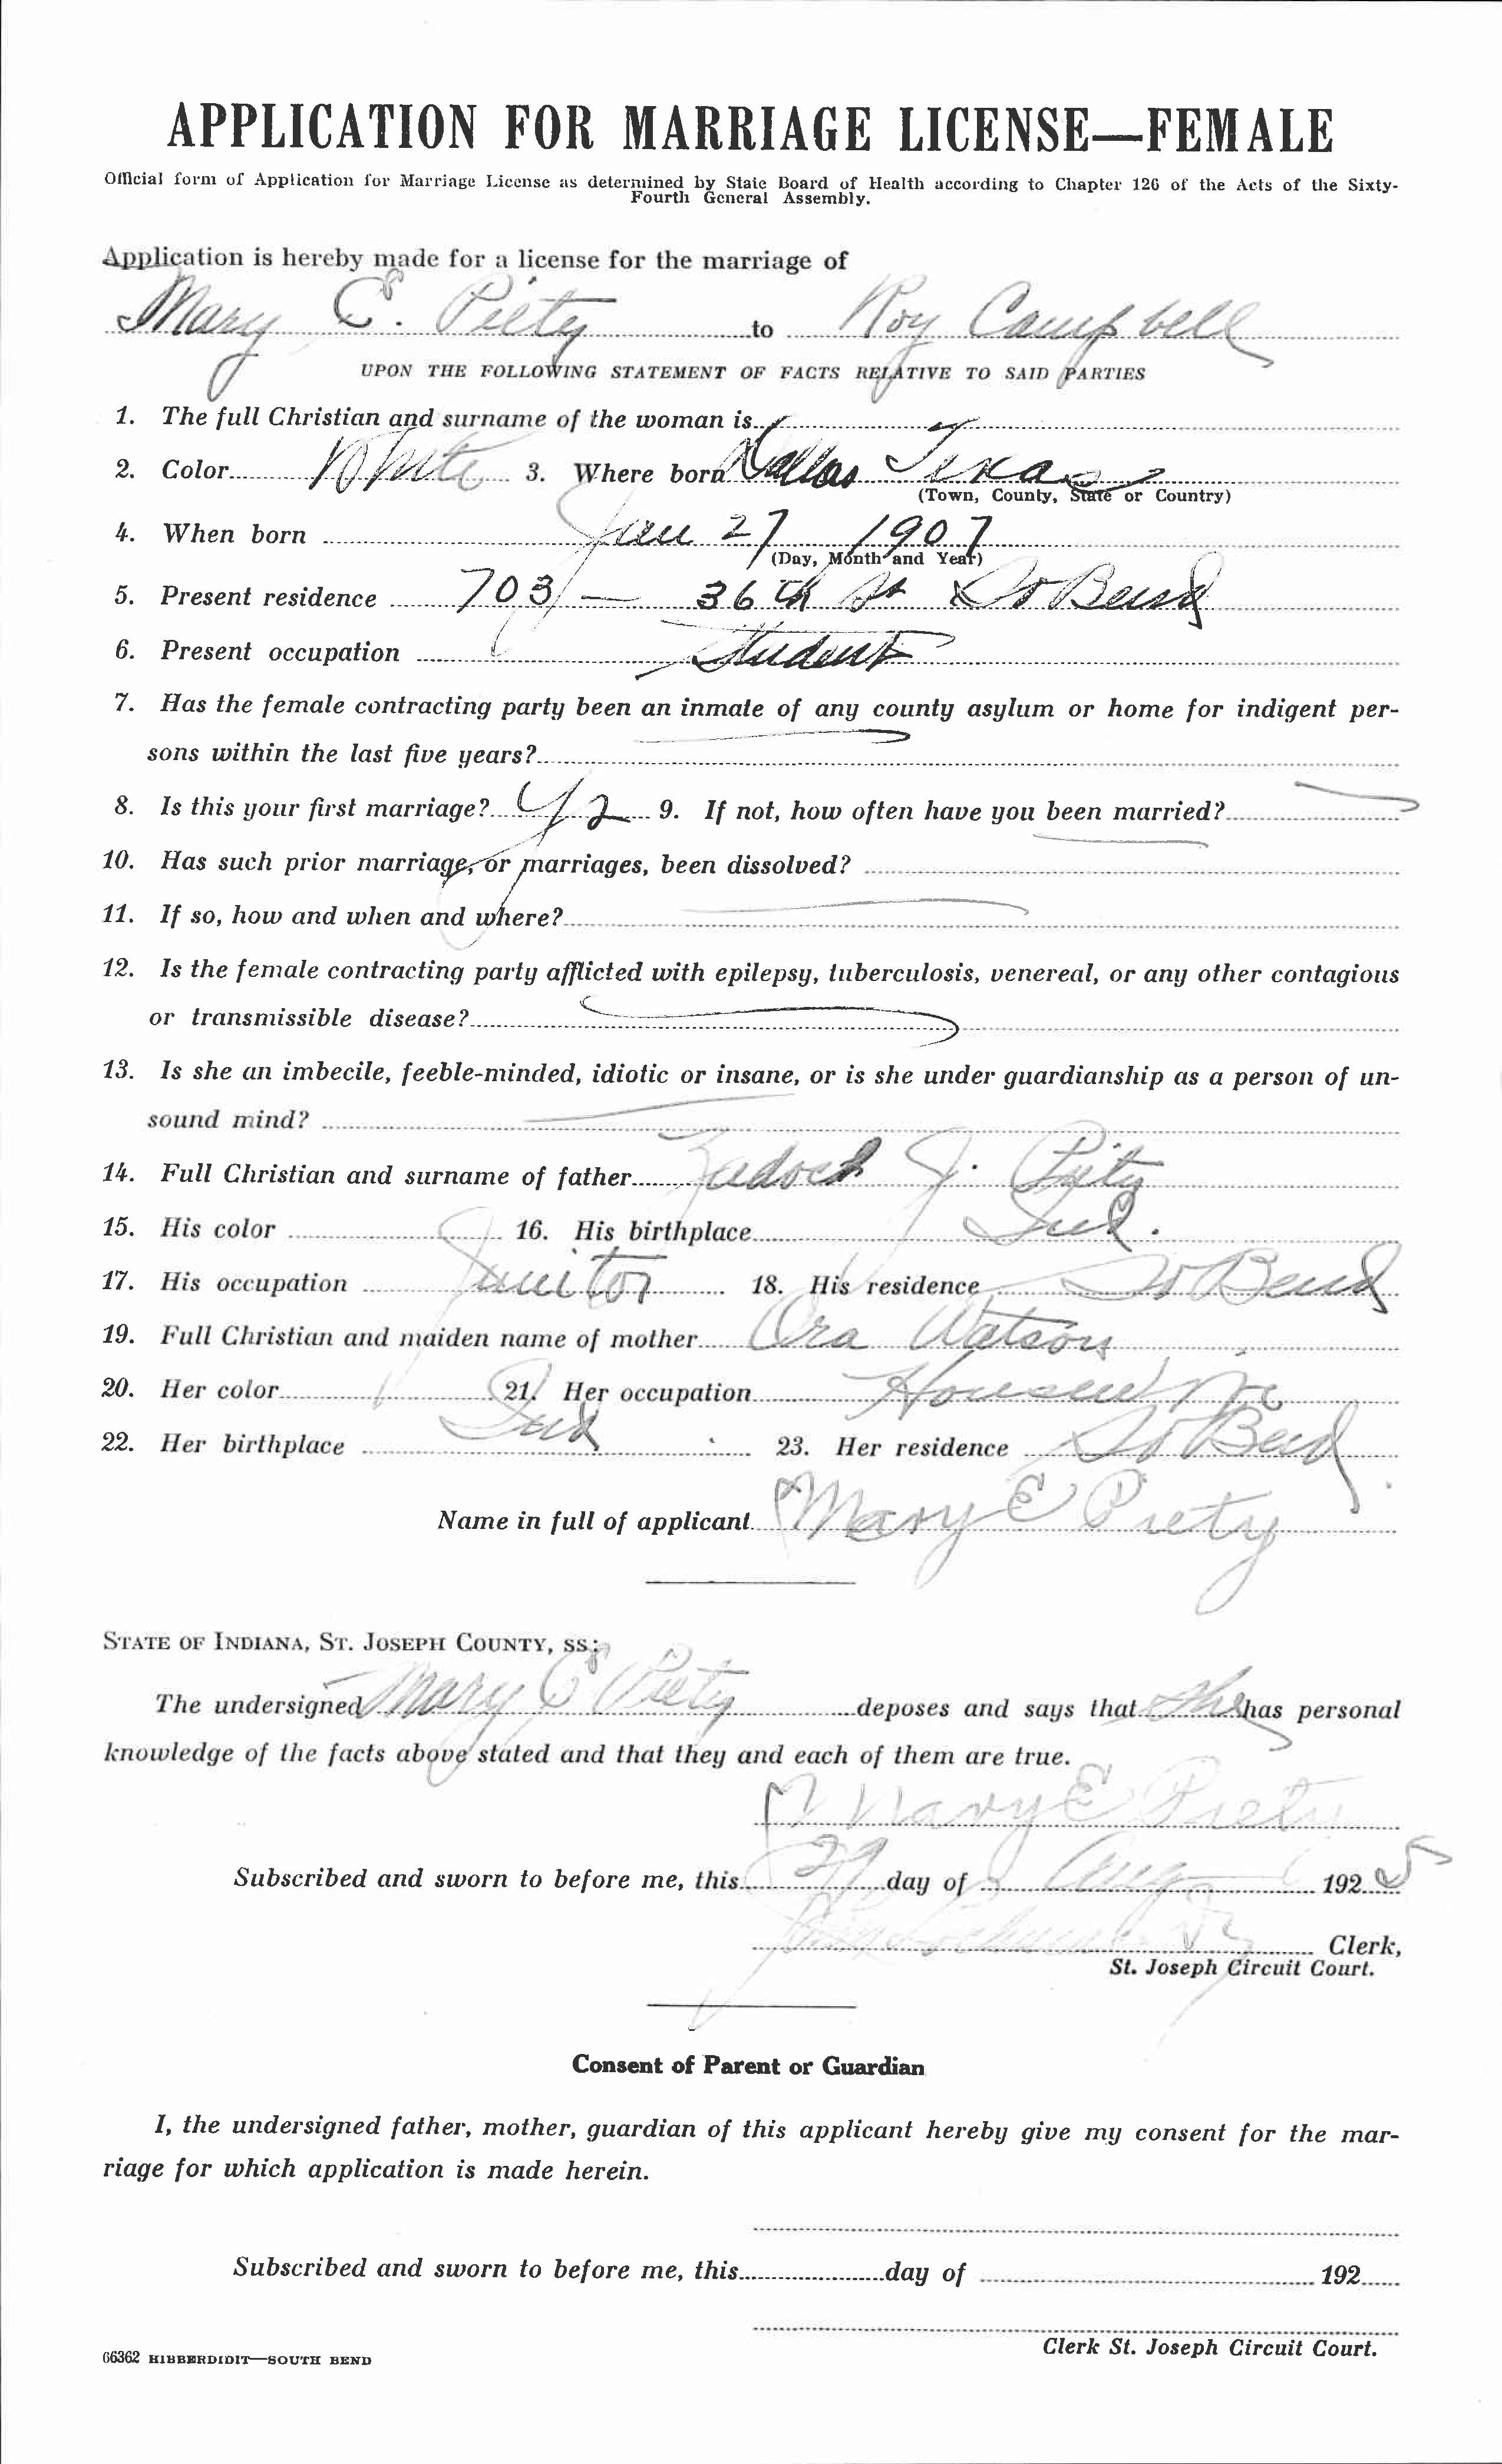 APPLICATION FOR MARRIAGE LICENSE—FEMALE
Official form of Application for Marriage License as determined by State Board of Health according to Chapter 126 of the Acts of the Sixty-
Fourth General Assembly.
Application is hereby made for a license for the marriage of
Mary E. Piety to Roy Campbell
UPON THE FOLLOWING STATEMENT OF FACTS RELATIVE TO SAID PARTIES
1. The full Christian and surname of the woman is
2. Color White 3. Where born Dallas Texas
(Town, County, State or Country)
4. When born Jan 27 1907
(Day, Month and Year)
5. Present residence 703 — 36th St So Bend
6. Present occupation Student
7. Has the female contracting party been an inmate of any county asylum or home for indigent per-
sons within the last five years?
8. Is this your first marriage? 9. If not, how often have you been married?
10. Has such prior marriage, or marriages, been dissolved?
11. If so, how and when and where?
12. Is the female contracting party afflicted with epilepsy, tuberculosis, venereal, or any other contagious
or transmissible disease?
13. Is she an imbecile, feeble-minded, idiotic or insane, or is she under guardianship as a person of un-
sound mind?
14. Full Christian and surname of father Zadock J. Piety
15. His color 16. His birthplace Ind.
17. His occupation Janitor 18. His residence So Bend
19. Full Christian and maiden name of mother Ora Watson
20. Her color 21. Her occupation Housewife
22. Her birthplace Ind 23. Her residence So Bend
Name in full of applicant Mary E Piety
STATE OF INDIANA, ST. JOSEPH COUNTY, SS:
The undersigned Mary E Piety deposes and says that she has personal
knowledge of the facts above stated and that they and each of them are true.
Mary E Piety
Subscribed and sworn to before me, this 29 day of Aug 1925
Clerk,
St. Joseph Circuit Court.
Consent of Parent or Guardian
I, the undersigned father, mother, guardian of this applicant hereby give my consent for the mar-
riage for which application is made herein.
Subscribed and sworn to before me, this day of 192
Clerk St. Joseph Circuit Court.
66362 HIBBERDIDIT—SOUTH BEND